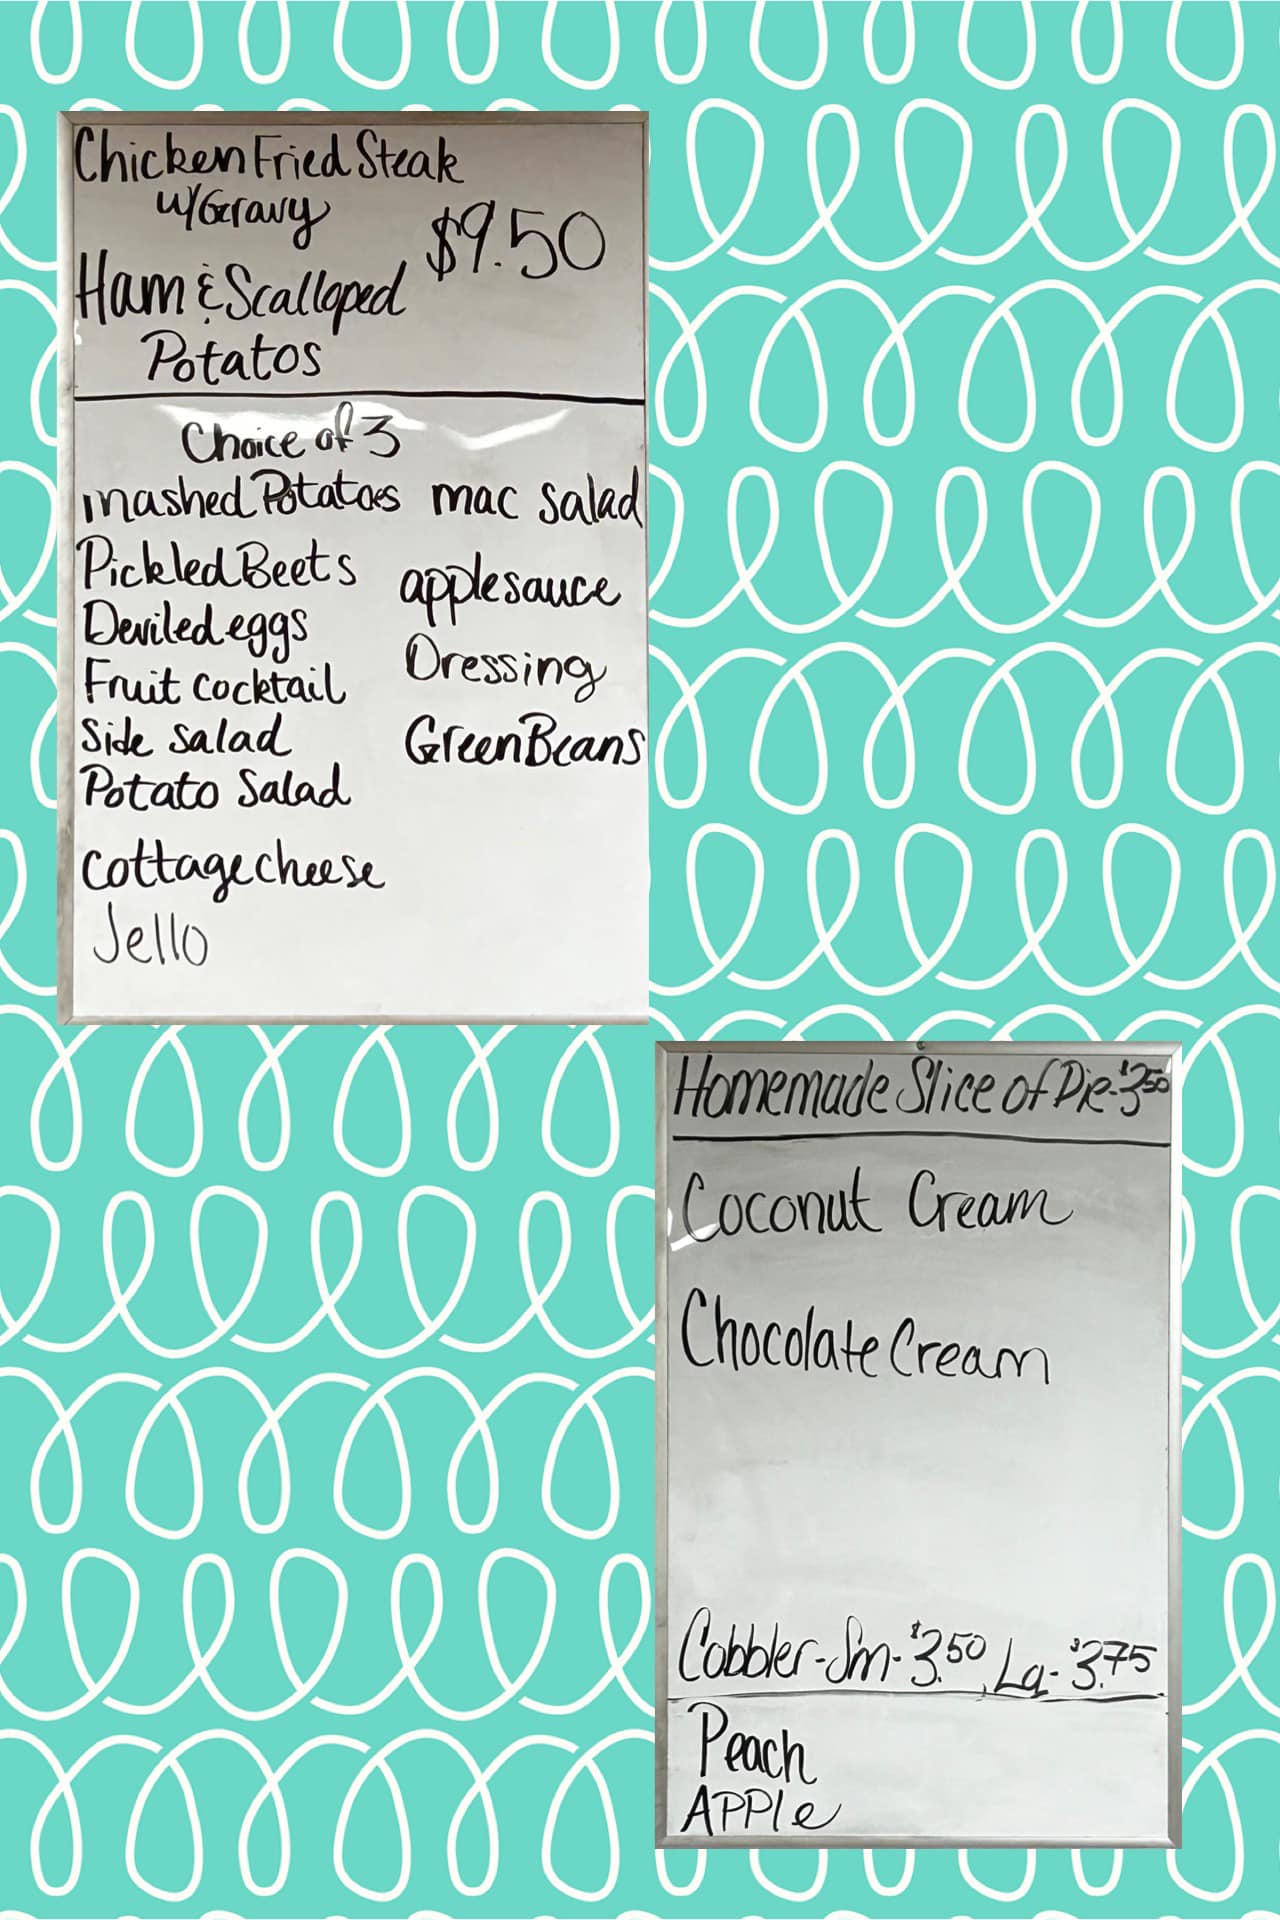 Chicken Fried Steak
w/Gravy
$9.50
Ham & Scalloped
Potatos
Choice of 3
mashed Potatoes
Pickled Beets
Deviled eggs
Fruit cocktail
Side salad
Potato Salad
cottage cheese
Jello
mac salad
applesauce
Dressing
Green Beans
Homemade Slice of Pie-$3.50
Coconut Cream
Chocolate Cream
Cobbler-Sm-$3.50, Lg-$3.75
Peach
Apple